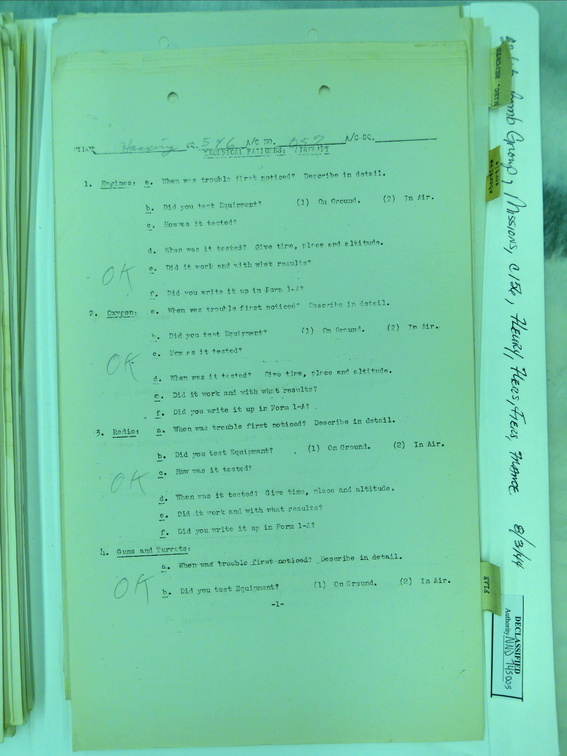 SQ. 546 A/C NO. 057 A/C SQ.
TECHNICAL FAILURES: AIRCRAFT
1. Engines: a. When was trouble first noticed? Describe in detail.
b. Did you test Equipment? (1) On Ground. (2) In Air.
c. How was it tested?
d. When was it tested? Give time, place and altitude.
OK
e. Did it work and with what results?
f. Did you write it up in Form 1-A?
2. Oxygen: a. When was trouble first noticed? Describe in detail.
b. Did you test Equipment? (1) On Ground. (2) In Air.
OK
c. How as it tested?
d. When was it tested? Give time, place and altitude.
e. Did it work and with what results?
f. Did you write it up in Form 1-A?
3. Radio: a. When was trouble first noticed? Describe in detail.
b. Did you test Equipment? (1) On Ground. (2) In Air.
OK
c. How was it tested?
d. When was it tested? Give time, place and altitude.
e. Did it work and with what results?
f. Did you write it up in Form 1-A?
4. Guns and Turrets:
a. When was trouble first noticed? Describe in detail.
OK
b. Did you test Equipment? (1) On Ground. (2) In Air.
-1-
Bomb Group, Missions, C.156, FLEURY, FLERS, FLERS, FRANCE 8/3/44
MISC. REPORTS
FLAK
DECLASSIFIED
Authority NND 745005